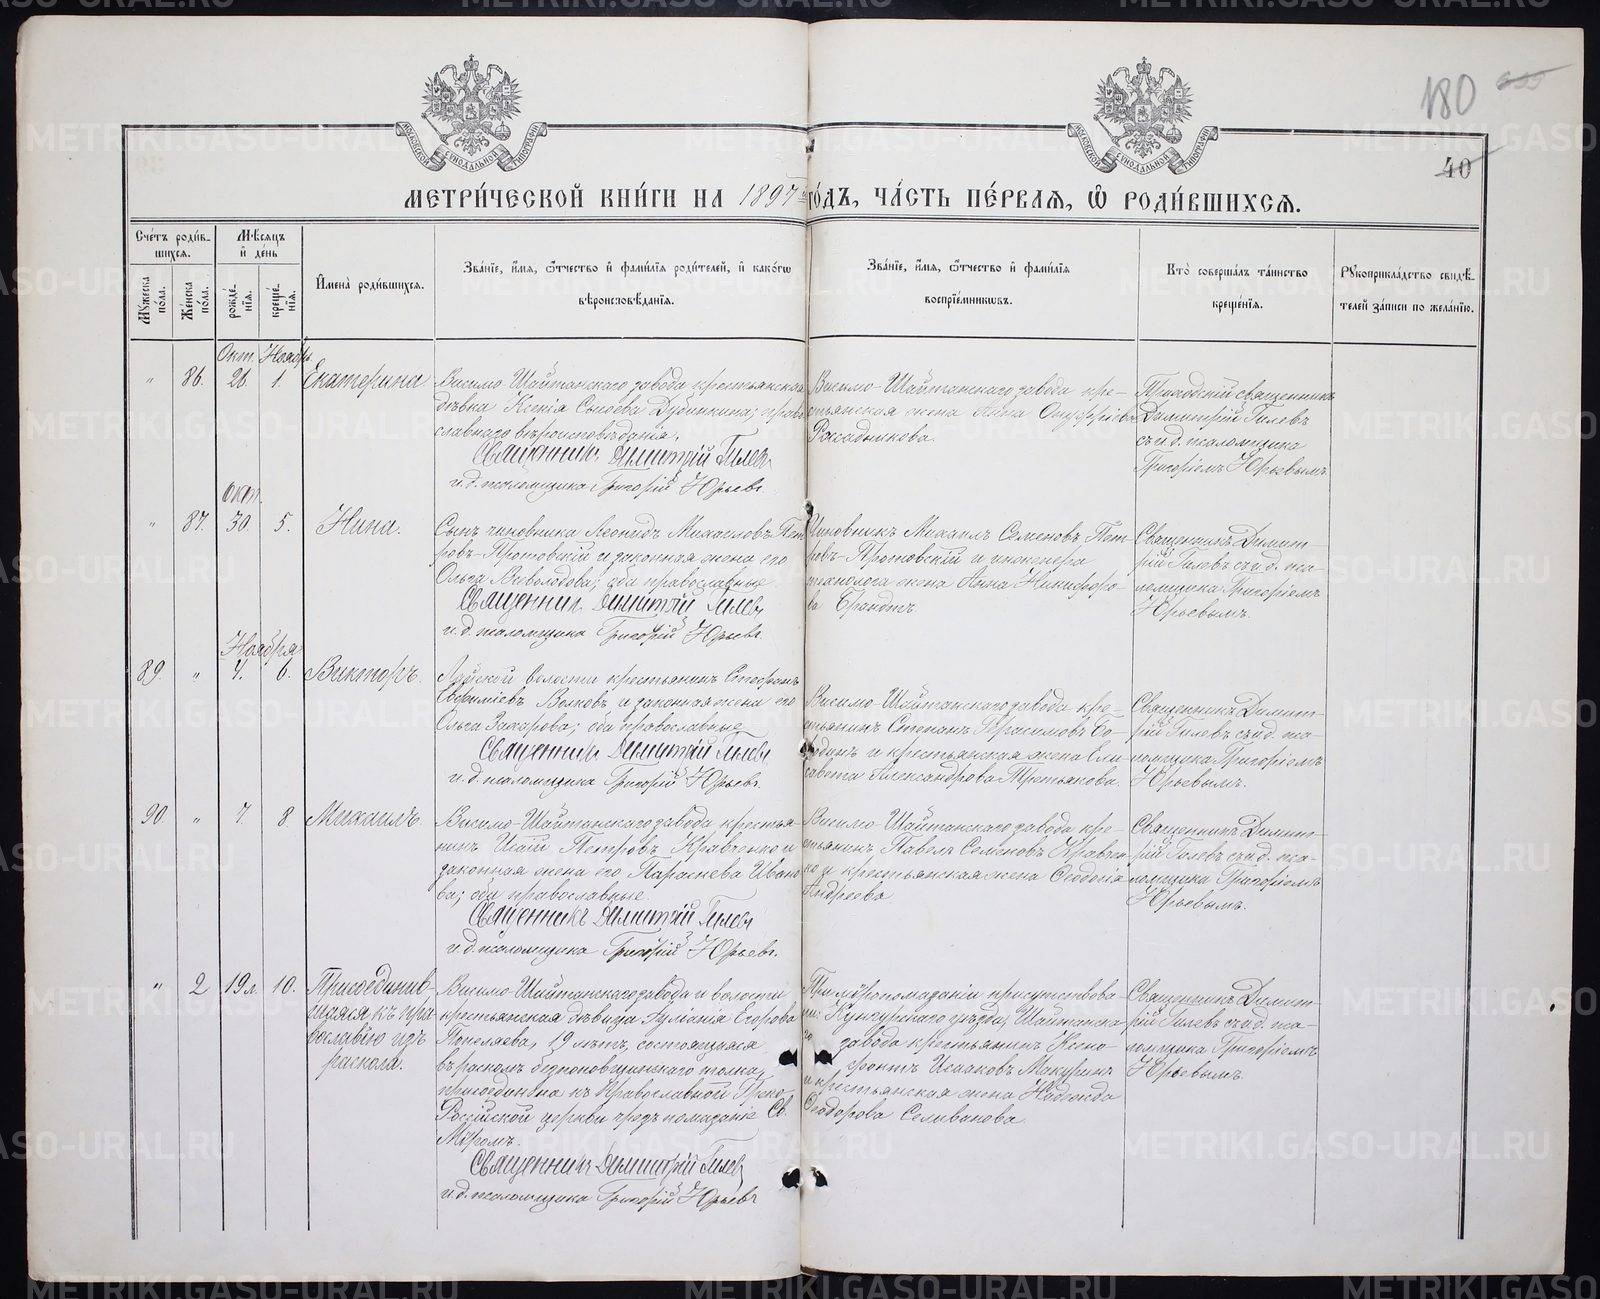 180
40
МОСКОВСКОЙ СѴНОДАЛЬНОЙ ТИПОГРАФІИ
МОСКОВСКОЙ СѴНОДАЛЬНОЙ ТИПОГРАФІИ
МЕТРИ́ЧЕСКОЙ КНИ́ГИ НА 1897 ГО́ДЪ, ЧА́СТЬ ПЕ́РВАЯ, Ѡ РОДИ́ВШИХСЯ.
Сче́тъ роди́в-
шихся.
Мѣсяцъ
и҆ де́нь
Мꙋжеска по́ла.
Же́нска по́ла.
рожде́нїѧ.
креще́нїѧ.
И҆мена̀ роди́вшихся.
Зва́нїе, и҆́мѧ, ѻ҆́тчество и҆ фами́лїѧ роди́телей, и҆ како́гѡ
вѣроисповѣ́данїѧ.
Зва́нїе, и҆́мѧ, ѻ҆́тчество и҆ фами́лїѧ
воспрїе́мникѡвъ.
Кто̀ соверша́лъ та́инство
креще́нїѧ.
Рꙋкоприкла́дство свидѣ́-
телей за́писи по жела́нїю.
Окт. Ноябр.
" 86. 26. 1. Екатерина
Висимо-Шайтанскаго завода крестьянская
дѣвка Ксенія Сысоева Дубинкина; право-
славнаго вѣроисповѣданія.
Священникъ Димитрій Гилевъ
и. д. псаломщика Григорій Юрьевъ.
Висимо-Шайтанскаго завода кре-
стьянская жена Анна Онуфріева
Разсадникова.
Приходскій священникъ
Димитрій Гилевъ
съ и. д. псаломщика
Григоріемъ Юрьевымъ.
Окт.
" 87. 30. 5. Нина.
Сынъ чиновника Леонидъ Михаиловъ Пет-
ровъ-Протовскій и законная жена его
Ольга Всеволодова; оба православные.
Священникъ Димитрій Гилевъ
и. д. псаломщика Григорій Юрьевъ.
Чиновникъ Михаилъ Семеновъ Пет-
ровъ-Протовскій и инженера
технолога жена Анна Никифоро-
ва Брандтъ.
Священникъ Димит-
рій Гилевъ съ и. д. пса-
ломщика Григоріемъ
Юрьевымъ.
Ноября
89. " 4. 6. Викторъ.
волости крестьянинъ Стефанъ
Евфиміевъ Волковъ и законная жена его
Ольга Захарова; оба православные.
Священникъ Димитрій Гилевъ
и. д. псаломщика Григорій Юрьевъ.
Висимо-Шайтанскаго завода кре-
стьянинъ Степанъ Герасимовъ Бо-
роданъ и крестьянская жена Ели-
савета Александрова Третьякова.
Священникъ Димит-
рій Гилевъ съ и. д. пса-
ломщика Григоріемъ
Юрьевымъ.
90. " 7. 8. Михаилъ.
Висимо-Шайтанскаго завода крестья-
нинъ Исаій Петровъ Кравченко и
законная жена его Параскева Ивано-
ва; оба православные.
Священникъ Димитрій Гилевъ
и. д. псаломщика Григорій Юрьевъ.
Висимо-Шайтанскаго завода кре-
стьянинъ Павелъ Семеновъ Кравчен-
ко и крестьянская жена Ѳеодосія
Андреева
Священникъ Димит-
рій Гилевъ съ и. д. пса-
ломщика Григоріемъ
Юрьевымъ.
" 2 19 л. 10. Присоединив-
шаяся къ пра-
вославію изъ
раскола.
Висимо-Шайтанскаго завода и волости
крестьянская дѣвица Іуліанія Егорова
19 лѣтъ, состоящая
въ расколѣ безпоповщинскаго толка,
присоединена къ Православной Греко-
Россійской церкви чрезъ помазаніе Св.
Мѵромъ.
Священникъ Димитрій Гилевъ
и. д. псаломщика Григорій Юрьевъ
При мѵропомазаніи присутствова-
ли: Кунгурскаго уѣзда, Шайтанска-
го завода крестьянинъ Ксено-
фонтъ Исааковъ Макуринъ
и крестьянская жена Надежда
Ѳеодорова Селиванова.
Священникъ Димит-
рій Гилевъ съ и. д. пса-
ломщика Григоріемъ
Юрьевымъ.
METRIKI.GASO-URAL.RU